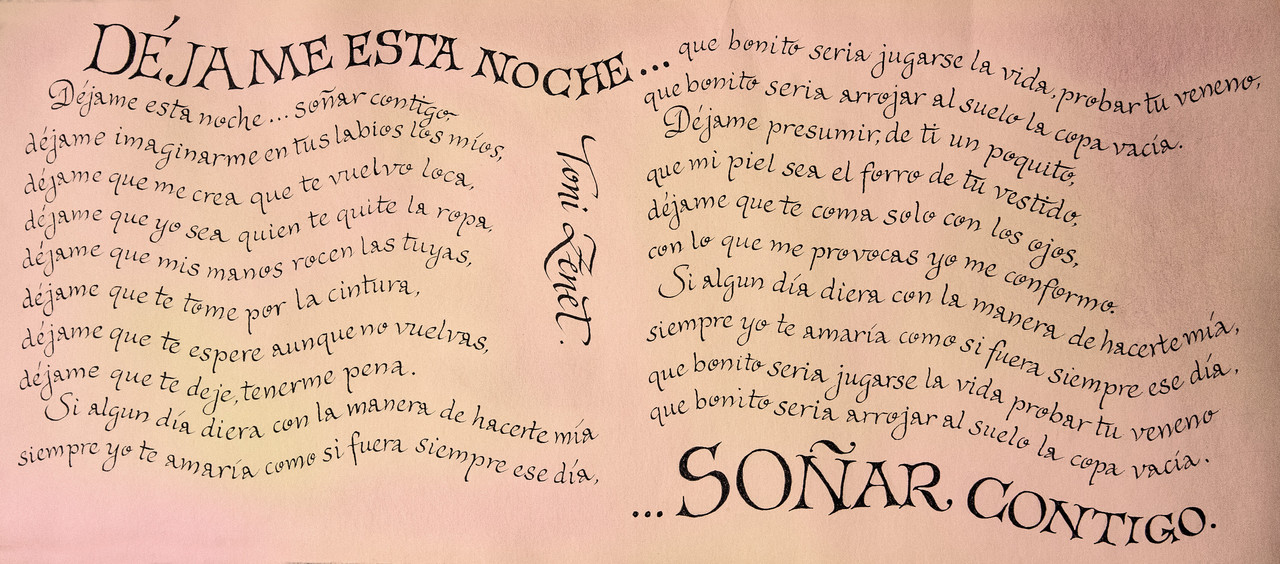 DÉJAME ESTA NOCHE...
Déjame esta noche... soñar contigo,
déjame imaginarme en tus labios los míos,
déjame que me crea que te vuelvo loca,
déjame que yo sea quien te quite la ropa,
déjame que mis manos rocen las tuyas,
déjame que te tome por la cintura,
déjame que te espere aunque no vuelvas,
déjame que te deje, tenerme pena.
Si algun día diera con la manera de hacerte mía
siempre yo te amaría como si fuera siempre ese día,
Toni Zenet.
que bonito seria jugarse la vida, probar tu veneno,
que bonito seria arrojar al suelo la copa vacía.
Déjame presumir, de ti un poquito,
que mi piel sea el forro de tu vestido,
déjame que te coma solo con los ojos,
con lo que me provocas yo me conformo.
Si algun día diera con la manera de hacerte mía,
siempre yo te amaría como si fuera siempre ese día,
que bonito seria jugarse la vida probar tu veneno
que bonito seria arrojar al suelo la copa vacía.
...SOÑAR CONTIGO.